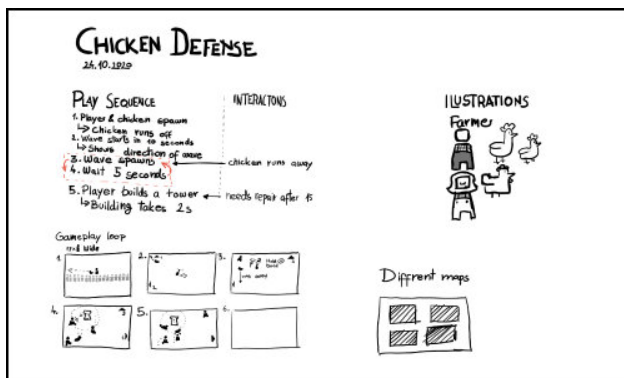 CHICKEN DEFENSE
24.10.2020
PLAY SEQUENCE
1. Player & chicken spawn
↳ Chicken runs off
2. Wave starts in 10 seconds
↳ Shows direction of wave
3. Wave spawns
4. Wait 5 seconds
5. Player builds a tower
↳ Building takes 2s
INTERACTONS
chicken runs away
needs repair after 15
ILUSTRATIONS
Farmer
Gameplay loop
1.
2.
3.
4.
5.
6.
Diffrent maps